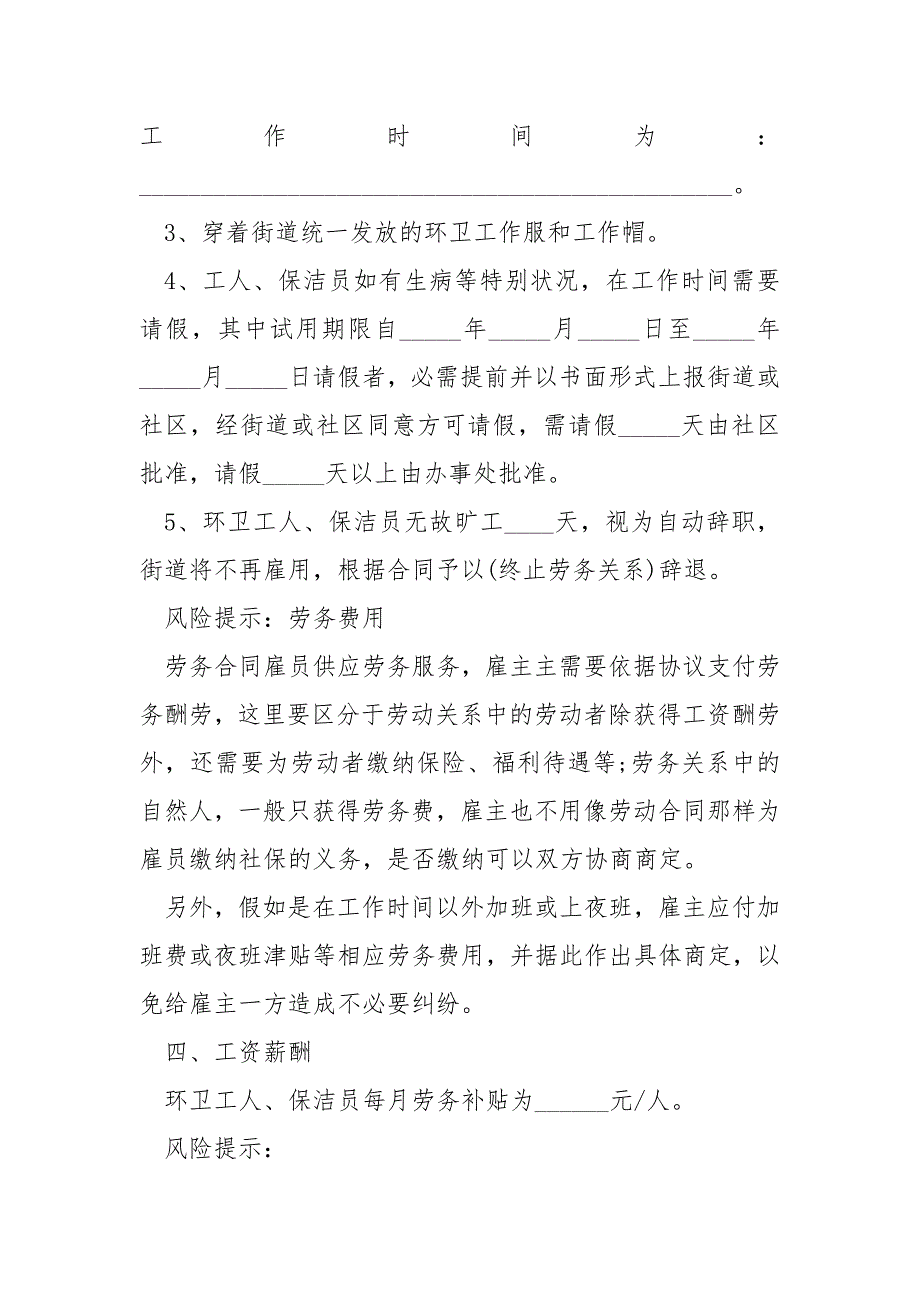 工作时间为：
________________________________________________。
3、穿着街道统一发放的环卫工作服和工作帽。
4、工人、保洁员如有生病等特别状况，在工作时间需要
请假，其中试用期限自_____年_____月_____日至_____年
_____月_____日请假者，必需提前并以书面形式上报街道或
社区，经街道或社区同意方可请假，需请假_____天由社区
批准，请假_____天以上由办事处批准。
5、环卫工人、保洁员无故旷工____天，视为自动辞职，
街道将不再雇用，根据合同予以(终止劳务关系)辞退。
风险提示：劳务费用
劳务合同雇员供应劳务服务，雇主主需要依据协议支付劳
务酬劳，这里要区分于劳动关系中的劳动者除获得工资酬劳
外，还需要为劳动者缴纳保险、福利待遇等;劳务关系中的
自然人，一般只获得劳务费，雇主也不用像劳动合同那样为
雇员缴纳社保的义务，是否缴纳可以双方协商商定。
另外，假如是在工作时间以外加班或上夜班，雇主应付加
班费或夜班津贴等相应劳务费用，并据此作出具体商定，以
免给雇主一方造成不必要纠纷。
四、工资薪酬
环卫工人、保洁员每月劳务补贴为______元/人。
风险提示：